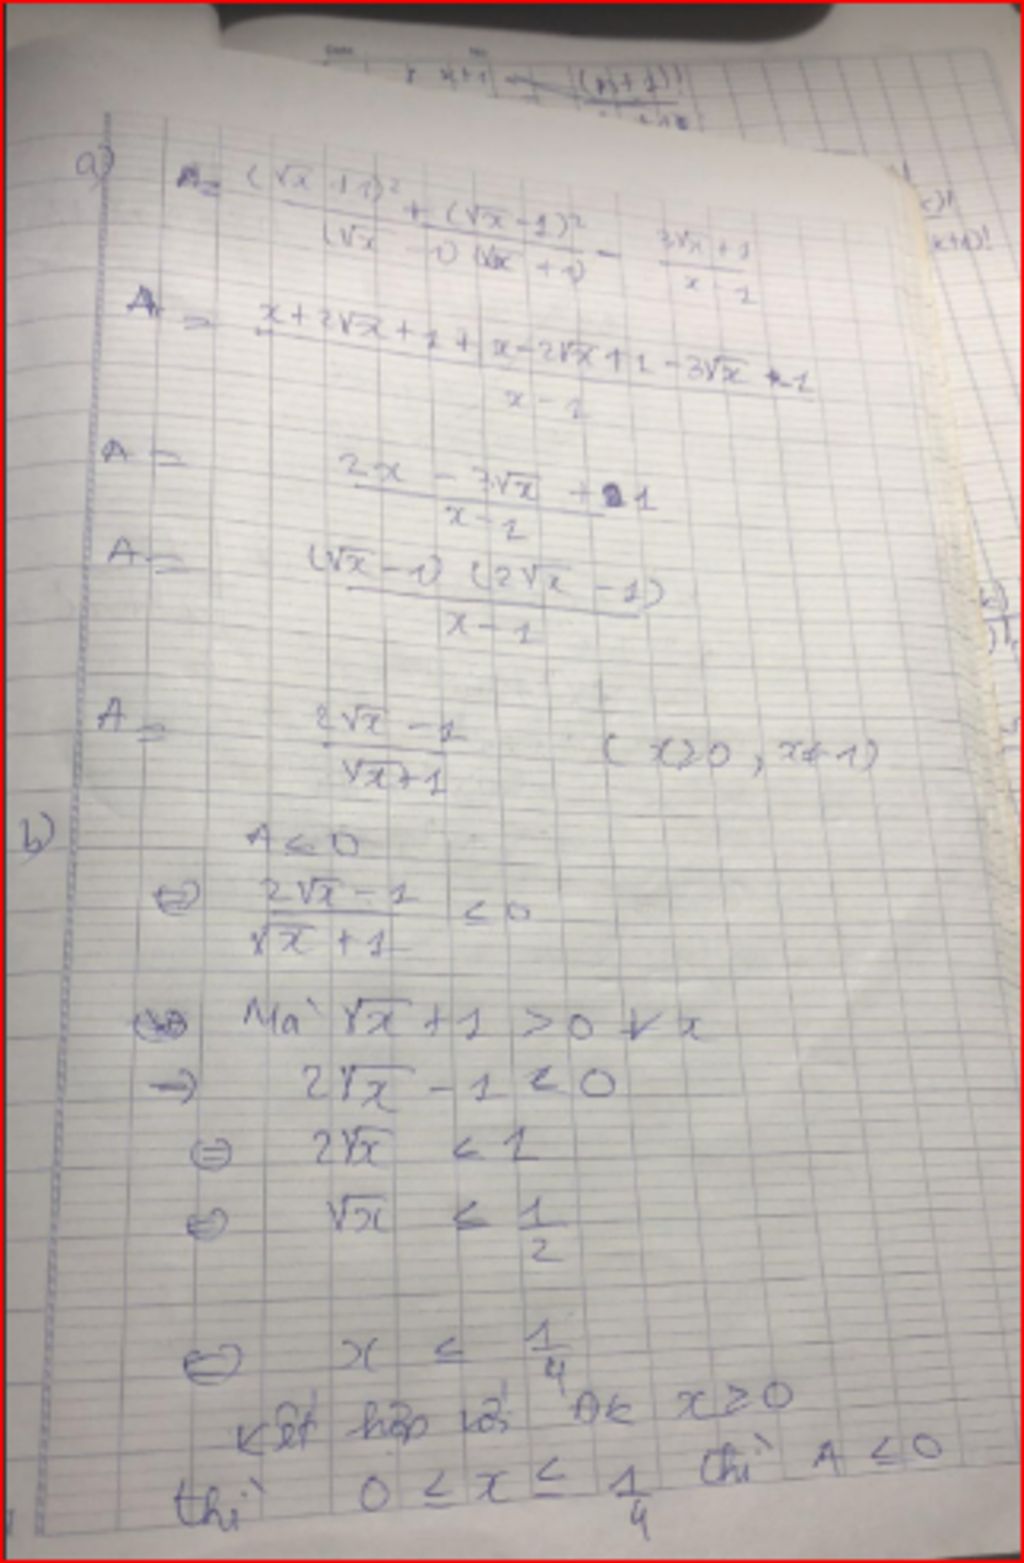 a) A = ((√x + 1)² + (√x - 1)²)/((√x - 1)(√x + 1)) - (3√x + 1)/(x - 1)
A = (x + 2√x + 1 + x - 2√x + 1 - 3√x - 1)/(x - 1)
A = (2x - 3√x + 1)/(x - 1)
A = ((√x - 1)(2√x - 1))/(x - 1)
A = (2√x - 1)/(√x + 1) (x ≥ 0, x ≠ 1)
b) A ≤ 0
⇔ (2√x - 1)/(√x + 1) ≤ 0
Mà √x + 1 > 0 ∀ x
→ 2√x - 1 ≤ 0
⇔ 2√x ≤ 1
⇔ √x ≤ 1/2
⇔ x ≤ 1/4
Kết hợp với ĐK x ≥ 0
thì 0 ≤ x ≤ 1/4 thì A ≤ 0